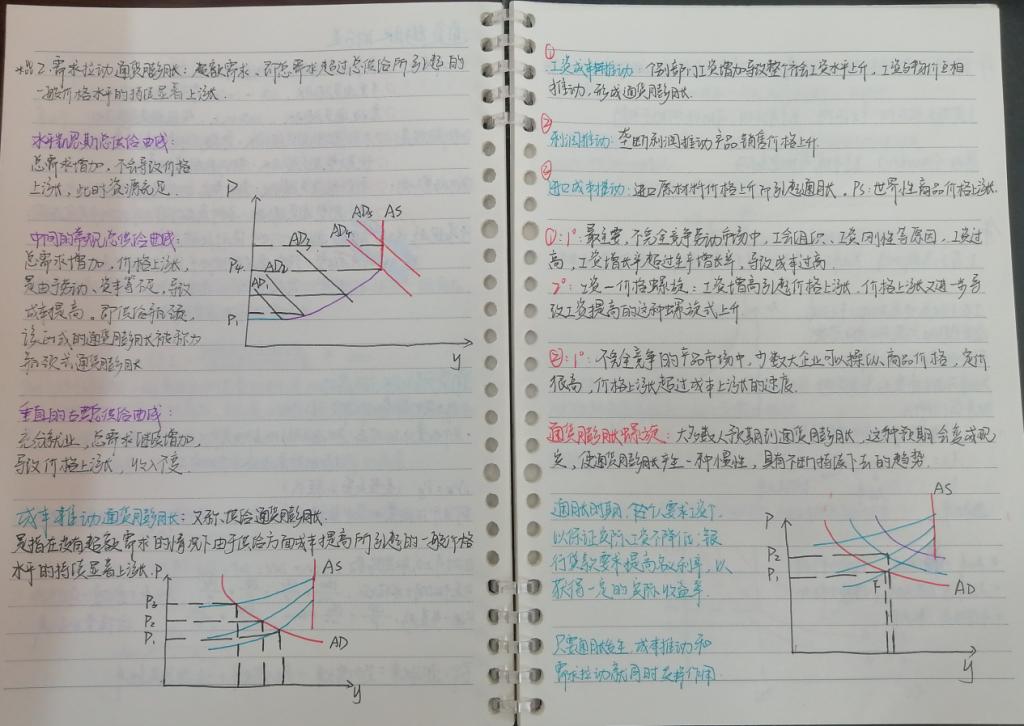 2. 需求拉动通货膨胀：超额需求，即总需求超过总供给所引起的
一般价格水平的持续显著上涨．
水平凯恩斯总供给曲线：
总需求增加，不会导致价格
上涨，此时资源充足．
中间的常规总供给曲线：
总需求增加，价格上涨，
是由于劳动、资本等不足，导致
成本提高．即供给瓶颈，
该形成的通货膨胀被称为
瓶颈式通货膨胀
垂直的古典总供给曲线：
充分就业，总需求继续增加，
导致价格上涨，收入不变．
P
AD5 AS
AD4
AD3
AD2
AD1
P4
P1
y
成本推动通货膨胀：又称供给通货膨胀．
是指在没有超额需求的情况下由于供给方面成本提高所引起的一般价格
水平的持续显著上涨．
P
AS
P3
P2
P1
AD
y
①
工资成本推动：个别部门工资增加导致整个社会工资水平上升，工资与物价互相
推动，形成通货膨胀．
②
利润推动：垄断利润推动产品销售价格上升
③
进口成本推动：进口原材料价格上升所引起通胀．Ps：世界性商品价格上涨．
①：1°：最主要，不完全竞争劳动市场中，工会组织、工资刚性等原因，工资过
高，工资增长率超过生产增长率，导致成本过高．
2°：工资—价格螺旋：工资增高引起价格上涨．价格上涨又进一步导
致工资提高的这种螺旋式上升
②：1°：不完全竞争的产品市场中，少数大企业可以操纵商品价格，定价
很高，价格上涨超过成本上涨的速度．
通货膨胀螺旋：大多数人预期到通货膨胀，这种预期会变成现
实，使通货膨胀产生一种惯性，具有不断持续下去的趋势．
通胀时期，
以保证实际工资不降低；银
行贷款要求提高名义利率，以
获得一定的实际收益率．
只要通胀发生，成本推动和
需求拉动就同时发挥作用
P
AS
P2
P1
F
AD
y